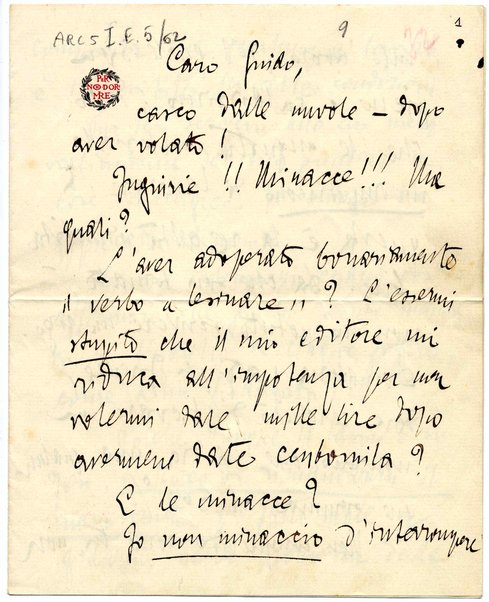 ARC 5 I.E.5/62
9
1
PER
NON DOR
MIRE
Caro Guido,
casco dalle nuvole – dopo
aver volato!
Ingiurie!! Minacce!!! Ma
quali?
L'aver adoperato bonariamente
il verbo "lesinare"? L'essermi
stupito che il mio editore mi
riduca all'impotenza per non
volermi dare mille lire dopo
avermene date centomila?
E le minacce?
Io non minaccio d'interrompere